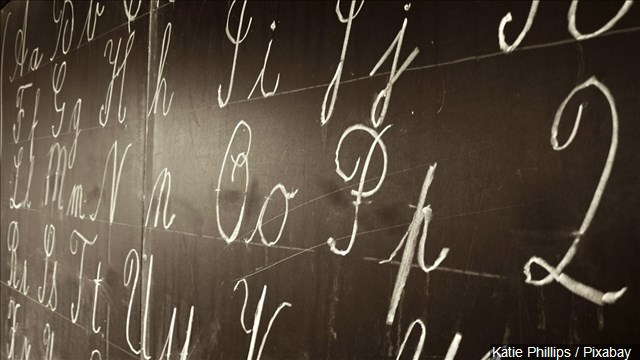 A a B b
F f G g H h I i J j
L l M m N n O o P p Q
R r S s T t U u V
Katie Phillips / Pixabay